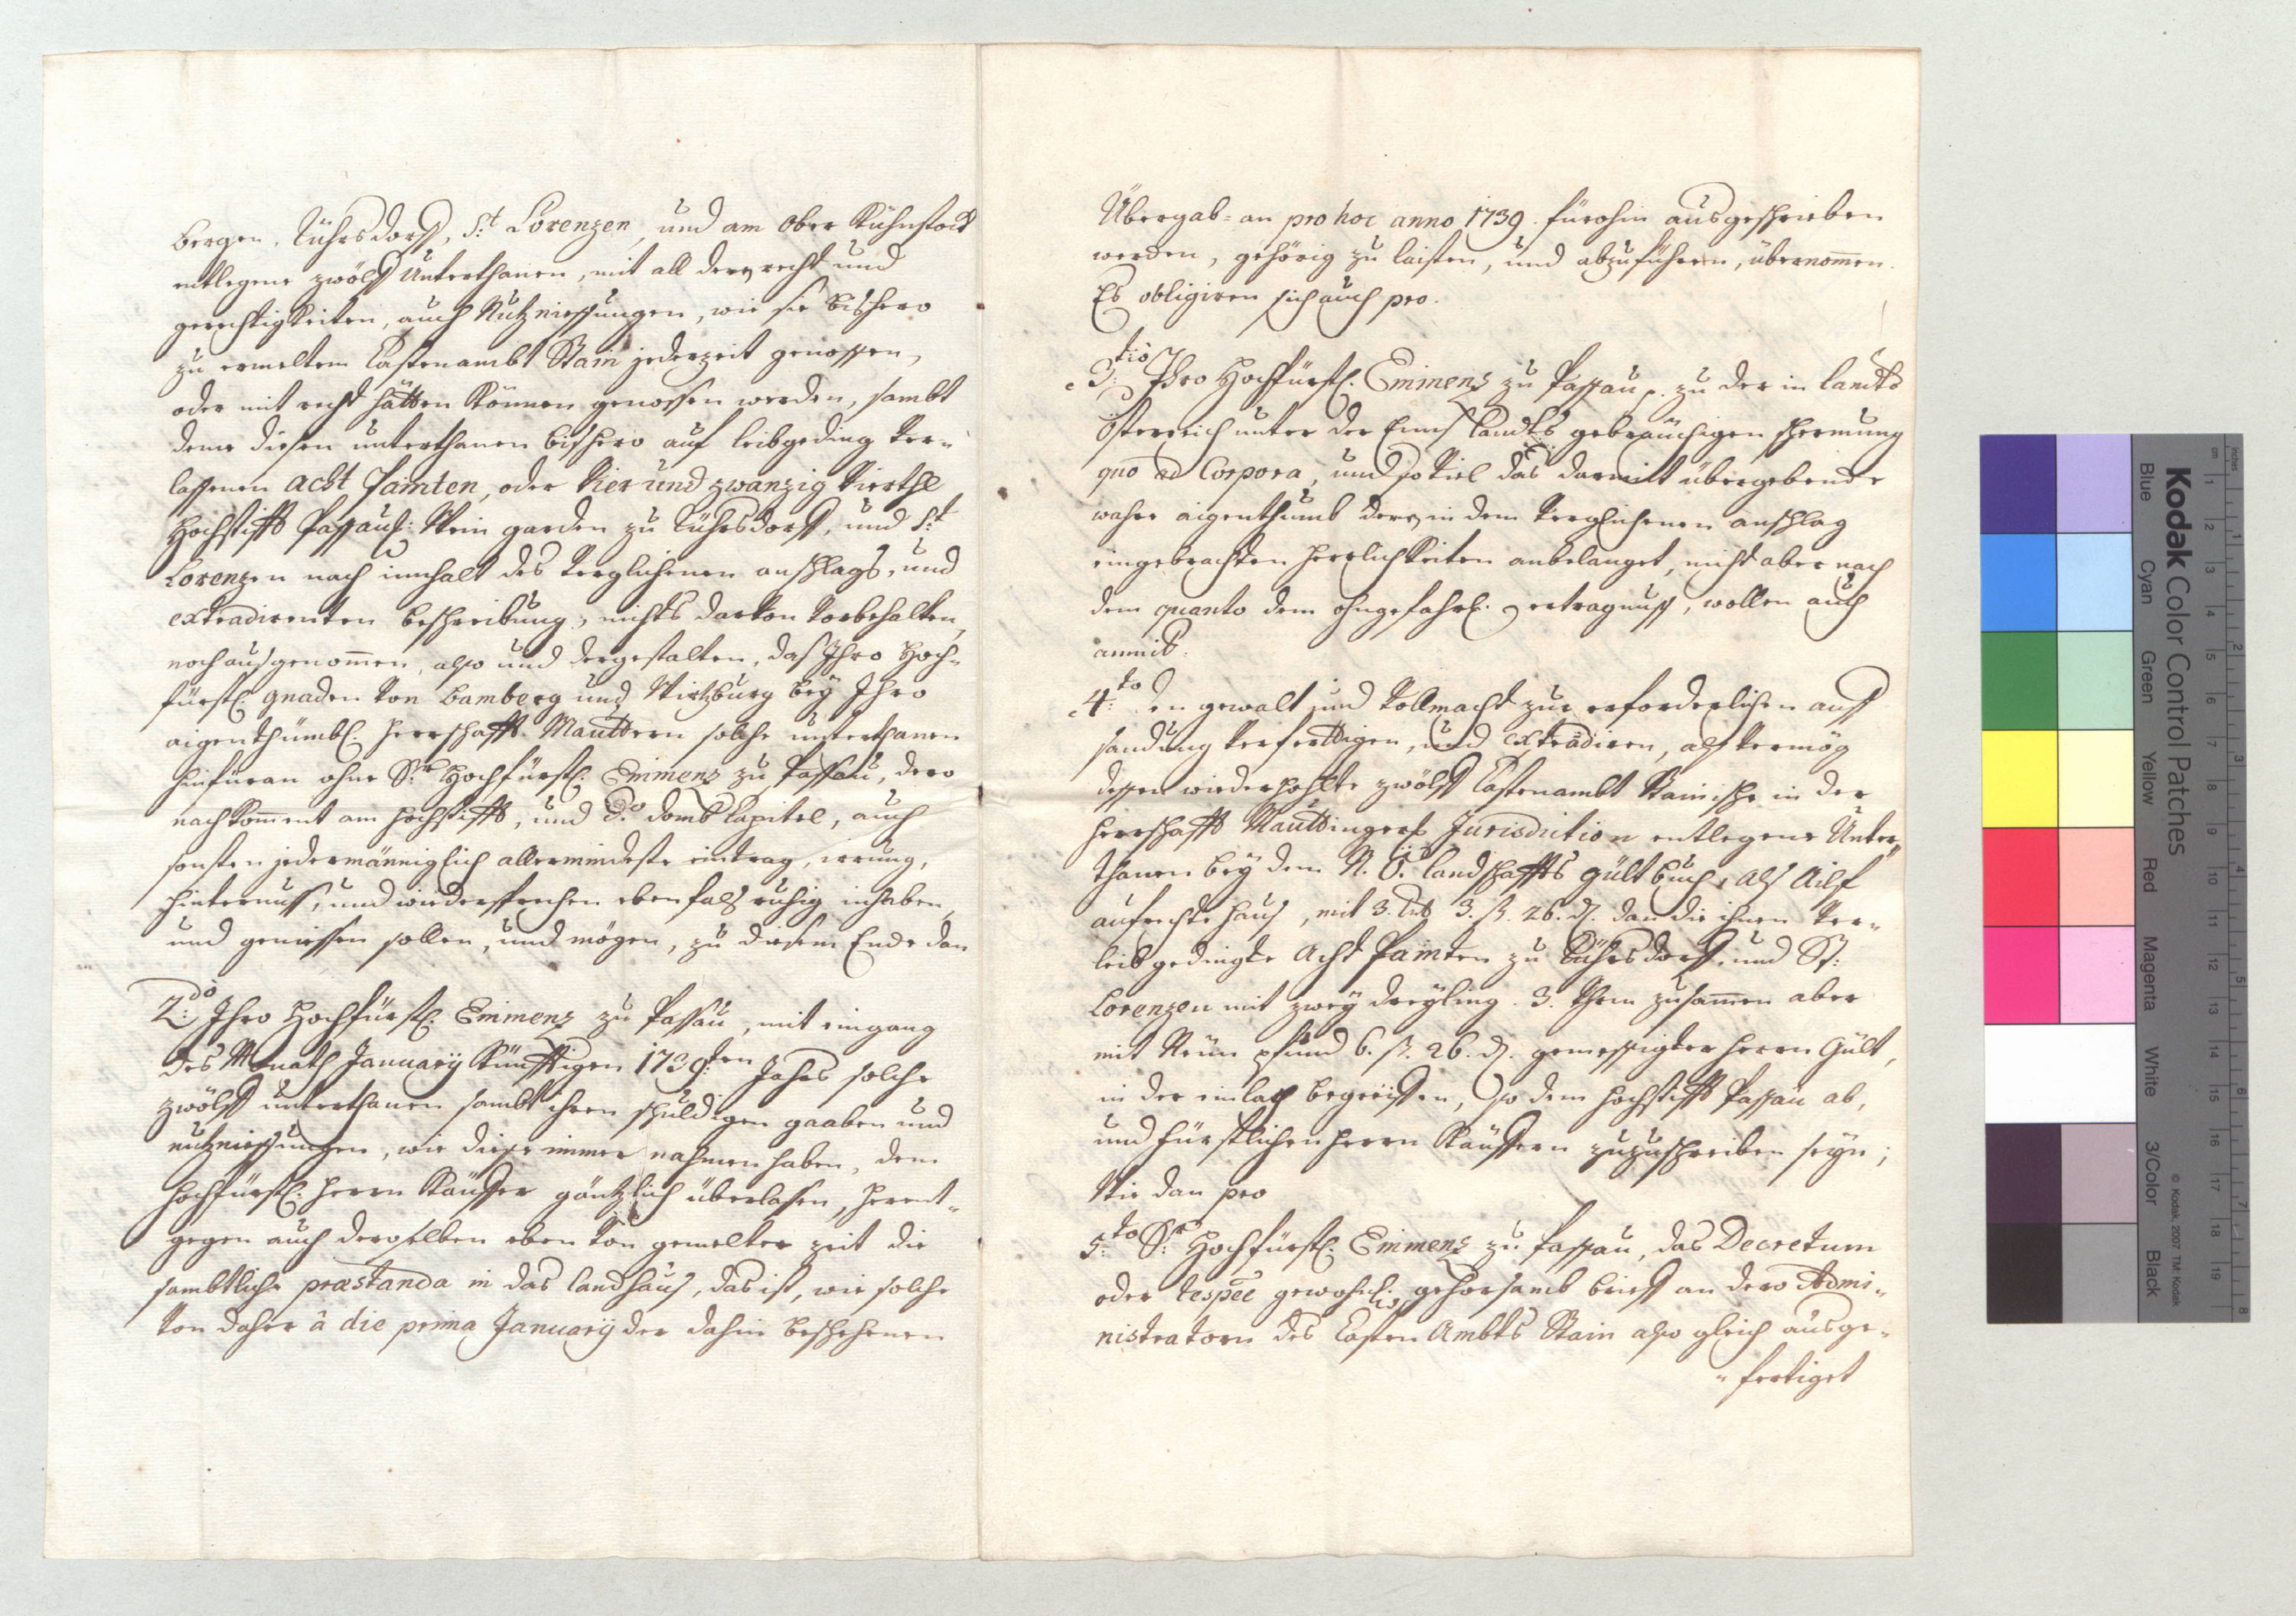 bergen, Rührsdorff, S:t Lorenzen, und am Ober Kühnstock
entlegene zwölff Unterthanen, mit all deren recht und
gerechtigkeiten, auch Nutzniessungen, wie sie bishero
zu ermeltem Castenambt Stain jederzeit genossen,
oder mit recht hätten können genossen werden, sambt
dene diesen unterthanen bisshero auf leibgeding ver-
lassenen acht Jaimten, oder Vier und zwanzig Vierthl
Hochstifft Passauis: Wein garden zu Rührsdorff, und S:t
Lorenzen nach innhalt des verglichenen anschlags, und
extradirenten beschreibung, nichts darvon vorbehalten,
noch aussgenommen, also und dergestalten, dass Ihro Hoch-
fürstl: gnaden von Bamberg und Wirtzburg bey Ihro
aigenthümbl: Herrschafft Mauttern solche unterthanen
hinfüran ohne S:r Hochfürstl: Eminenz zu Passau, dero
nachkommt am Hochstifft, und d:o Domb Capitel, auch
sonsten jedermänniglich allermindeste eintrag, irrung,
hinternuss, und wiedersprechen ebenfals ruhig inhaben,
und geniessen sollen, und mögen, zu diesem Ende dan
2:do Ihro Hochfürstl: Eminenz zu Passau, mit eingang
des Monath January künfftigen 1739:ten Jahrs solche
zwölff unterthanen sambt ihren schuldigen gaaben und
nutzniessungen, wie diese immer nahmen haben, dem
Hochfürstl: Herrn Kauffer gäntzlich überlassen, herent-
gegen auch deroselben eben von gemelter zeit die
sambtliche praestanda in das landhaus, das ist, wie solche
von daher â die prima January der dahin beschehenen
Übergab= an pro hoc anno 1739. fürohin aussgeschrieben
werden, gehörig zu laisten, und abzuführen, übernommen.
Es obligiren sich auch pro.
3:tio Ihro Hochfürstl: Eminenz zu Passau p. zu der in landts
Österreich unter der Enns landts gebräuchigen schermung
quo ad Corpora, und so viel das darmit übergebende
wahre aigenthumb deren in dem verglichenen anschlag
eingebrachten herrlichkeiten anbelanget, nicht aber nach
dem quanto dem ohngefahrl: ertragnuss, wollen auch
annnit.
4:to den gewalt und Vollmacht zur erforderlichen auff
sandung verferttigen, und extradiren, als vermög
dessen wiederhohlte zwölff Castenambt Stainische in der
herrschafft Mauttingerl: Jurisdiction entlegene Unter-
thanen bey dem N. Ö. landschaffts gült buch, als Ailf
aufrechte haus, mit 3. lib 3. ß. 26. d. dan die ihnen ver-
leibgedingte Acht Paimten zu Rührsdorff, und St:
Lorenzen mit zwey dreyling. 3. Ehm zusamen aber
mit Neun pfund 6. ß. 26. d. gemessigter herrn Gült,
in der einlag begriffen, so dem hochstifft Passau ab,
und fürstlichen herrn Kauffern zuzuschreiben seyn;
Wie dan pro
5:to S:r Hochfürstl: Eminenz zu Passau, das Decretum
oder respec gewohnl: gehorsamb brieff an dero Admi-
nistratorn des Casten Ambts Stain also gleich ausge-
fertiget
Kodak Color Control Patches
Blue Cyan Green Yellow Red Magenta White 3/Color Black
© Kodak, 2007 TM: Kodak
inches 1 2 3 4 5 6 7 8
cm 1 2 3 4 5 6 7 8 9 10 11 12 13 14 15 16 17 18 19